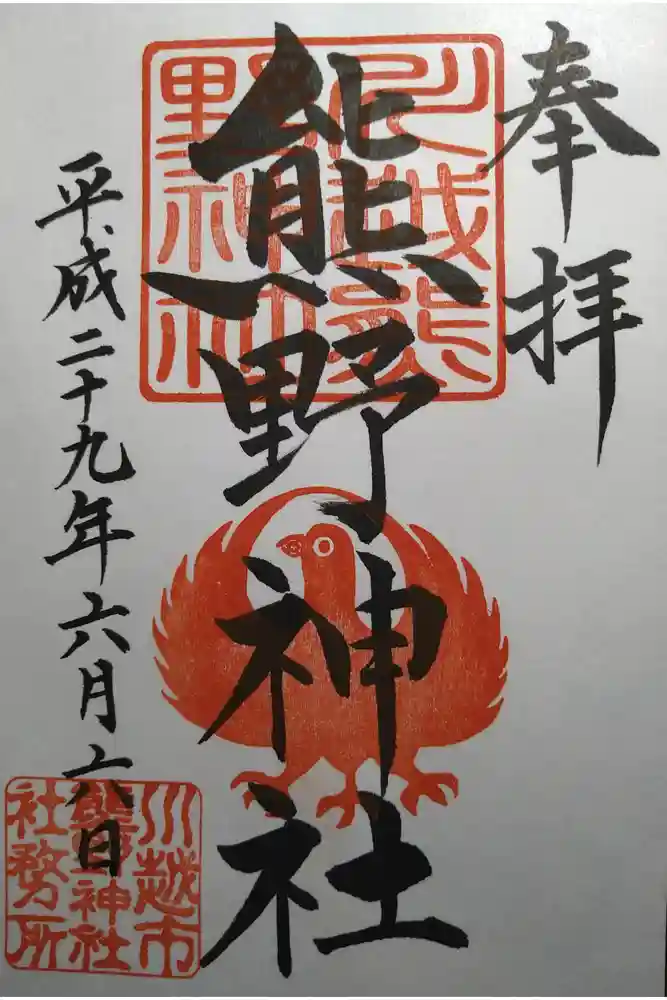 奉拝
熊野神社
平成二十九年六月六日
川越熊野神社
川越市
熊野神社
社務所